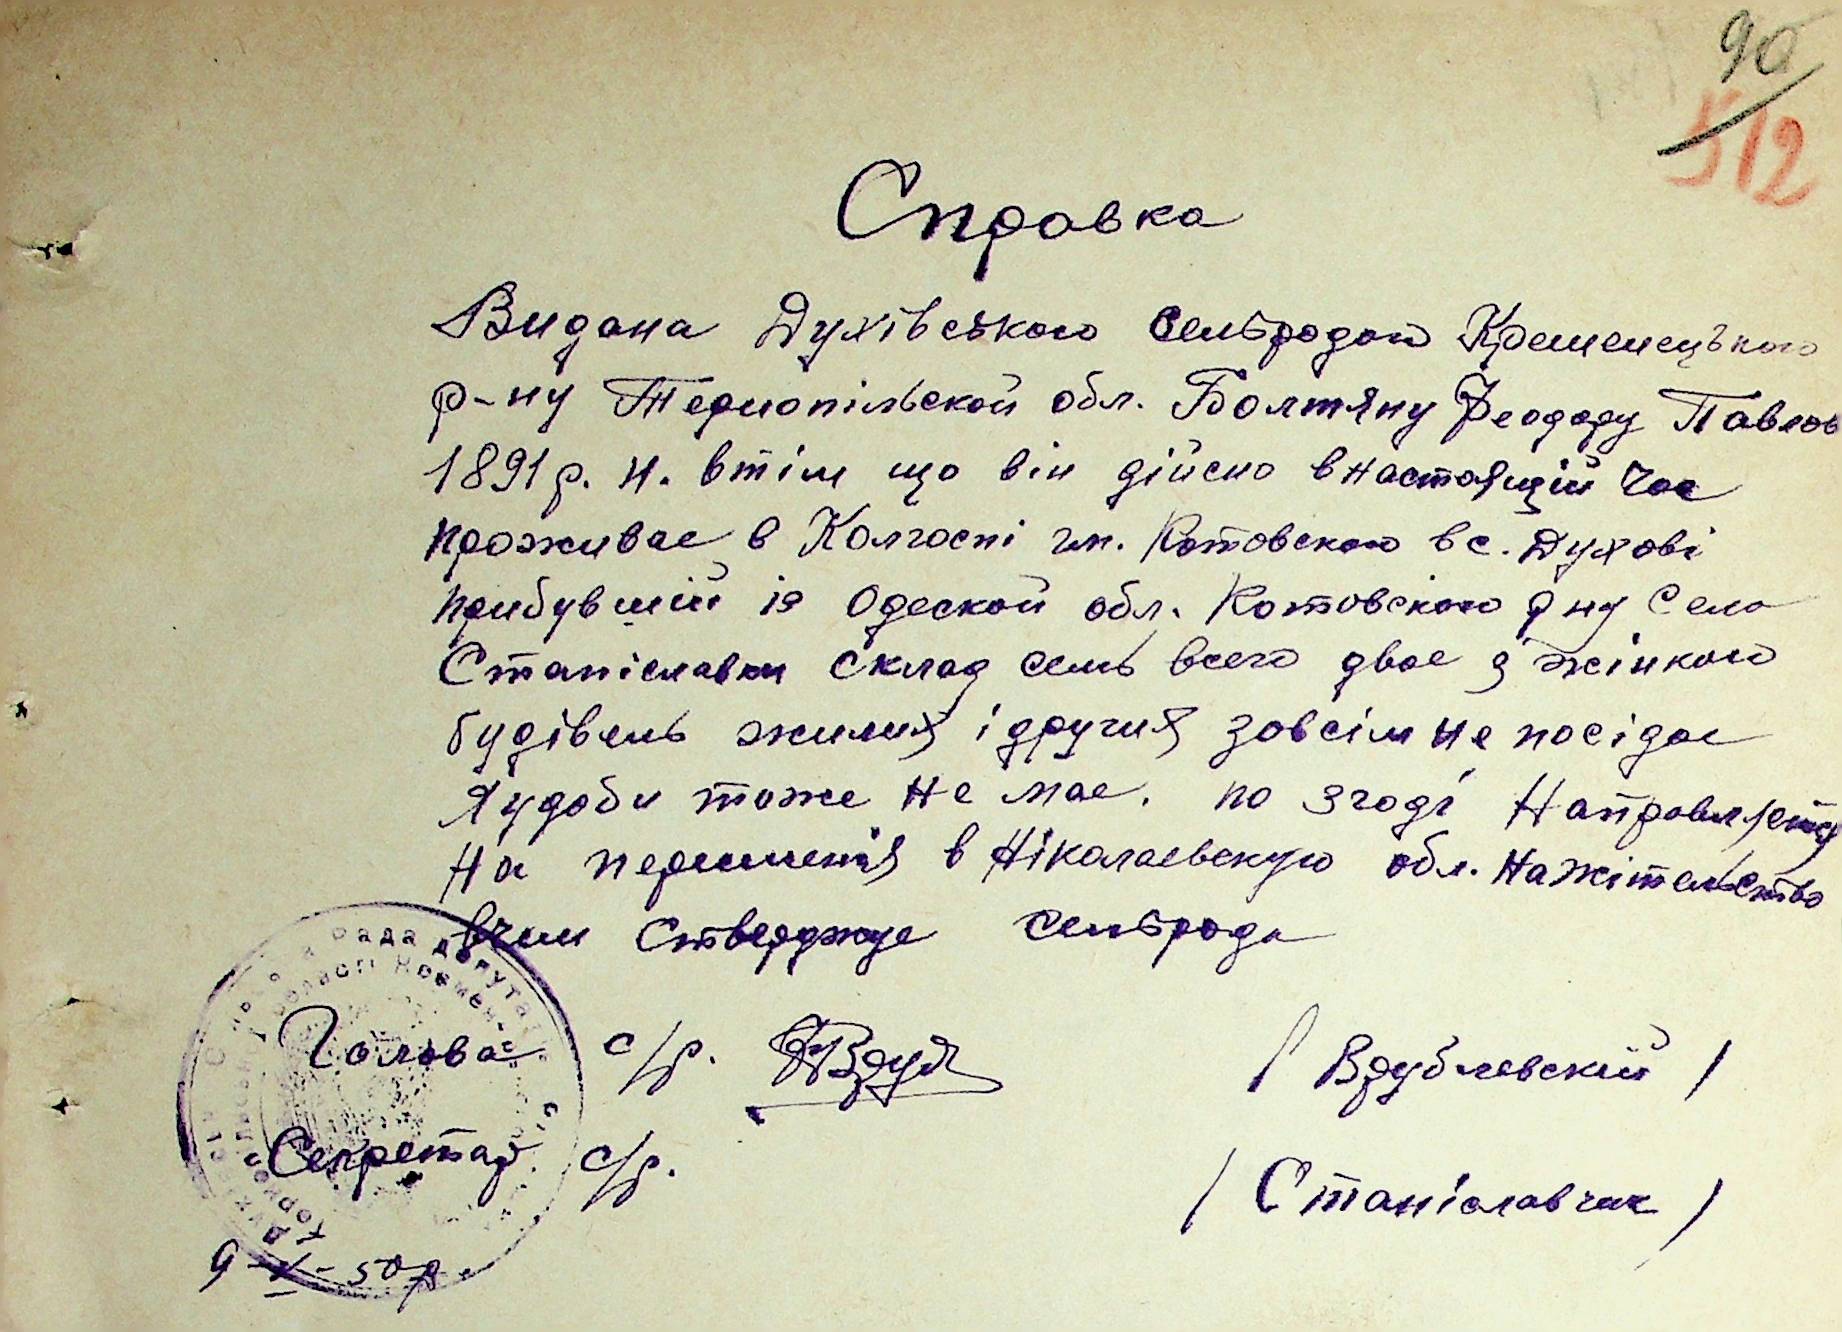 90
512
Справка
Видана Духівською сельрадой Кременецького
р-ну Тернопільской обл. Болтяну Феодору Павлов
1891 р. н. втім що він дійсно в настоящій час
проживає в Колгоспі ім. Котовского в с. Духові
прибувший із Одеской обл. Котовского р ну Село
Станіславки склад семь всего двоє з жінкою
будівель жилия і другия зовсім не посідає
Худоби тоже не має. по згоді Направляєтця
На переселенія в Ніколаевскую обл. На жітельство
вчим стверджує сельрада
Голова с/р. /Врублевский/
Секретар с/р. /Станіславчик/
9-V-50 р.